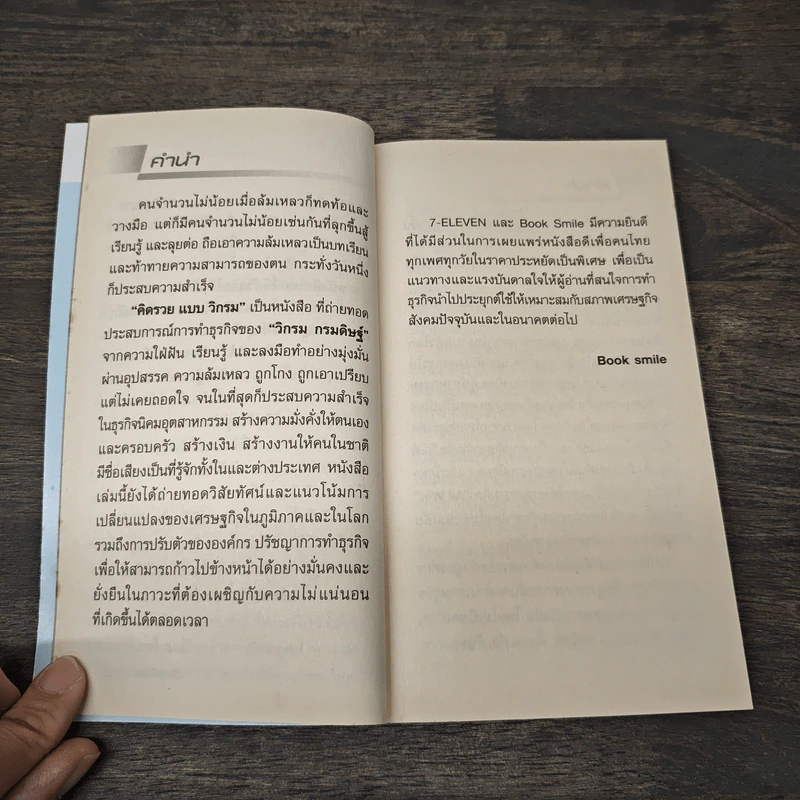 คำนำ
คนจำนวนไม่น้อยเมื่อล้มเหลวก็ทดท้อและ
วางมือ แต่ก็มีคนจำนวนไม่น้อยเช่นกันที่ลุกขึ้นสู้
เรียนรู้ และลุยต่อ ถือเอาความล้มเหลวเป็นบทเรียน
และท้าทายความสามารถของตน กระทั่งวันหนึ่ง
ก็ประสบความสำเร็จ
“คิดรวย แบบ วิกรม” เป็นหนังสือ ที่ถ่ายทอด
ประสบการณ์การทำธุรกิจของ “วิกรม กรมดิษฐ์”
จากความใฝ่ฝัน เรียนรู้ และลงมือทำอย่างมุ่งมั่น
ผ่านอุปสรรค ความล้มเหลว ถูกโกง ถูกเอาเปรียบ
แต่ไม่เคยถอดใจ จนในที่สุดก็ประสบความสำเร็จ
ในธุรกิจนิคมอุตสาหกรรม สร้างความมั่งคั่งให้ตนเอง
และครอบครัว สร้างเงิน สร้างงานให้คนในชาติ
มีชื่อเสียงเป็นที่รู้จักทั้งในและต่างประเทศ หนังสือ
เล่มนี้ยังได้ถ่ายทอดวิสัยทัศน์และแนวโน้มการ
เปลี่ยนแปลงของเศรษฐกิจในภูมิภาคและในโลก
รวมถึงการปรับตัวขององค์กร ปรัชญาการทำธุรกิจ
เพื่อให้สามารถก้าวไปข้างหน้าได้อย่างมั่นคงและ
ยั่งยืนในภาวะที่ต้องเผชิญกับความไม่แน่นอน
ที่เกิดขึ้นได้ตลอดเวลา
7-ELEVEN และ Book Smile มีความยินดี
ที่ได้มีส่วนในการเผยแพร่หนังสือดีเพื่อคนไทย
ทุกเพศทุกวัยในราคาประหยัดเป็นพิเศษ เพื่อเป็น
แนวทางและแรงบันดาลใจให้ผู้อ่านที่สนใจการทำ
ธุรกิจนำไปประยุกต์ใช้ให้เหมาะสมกับสภาพเศรษฐกิจ
สังคมปัจจุบันและในอนาคตต่อไป
Book smile